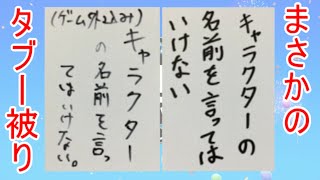 まさかの
キャラクターの
名前を言っては
いけない
(ゲーム外込み)
キャラクター
の名前を言っ
てはいけない。
タブー被り